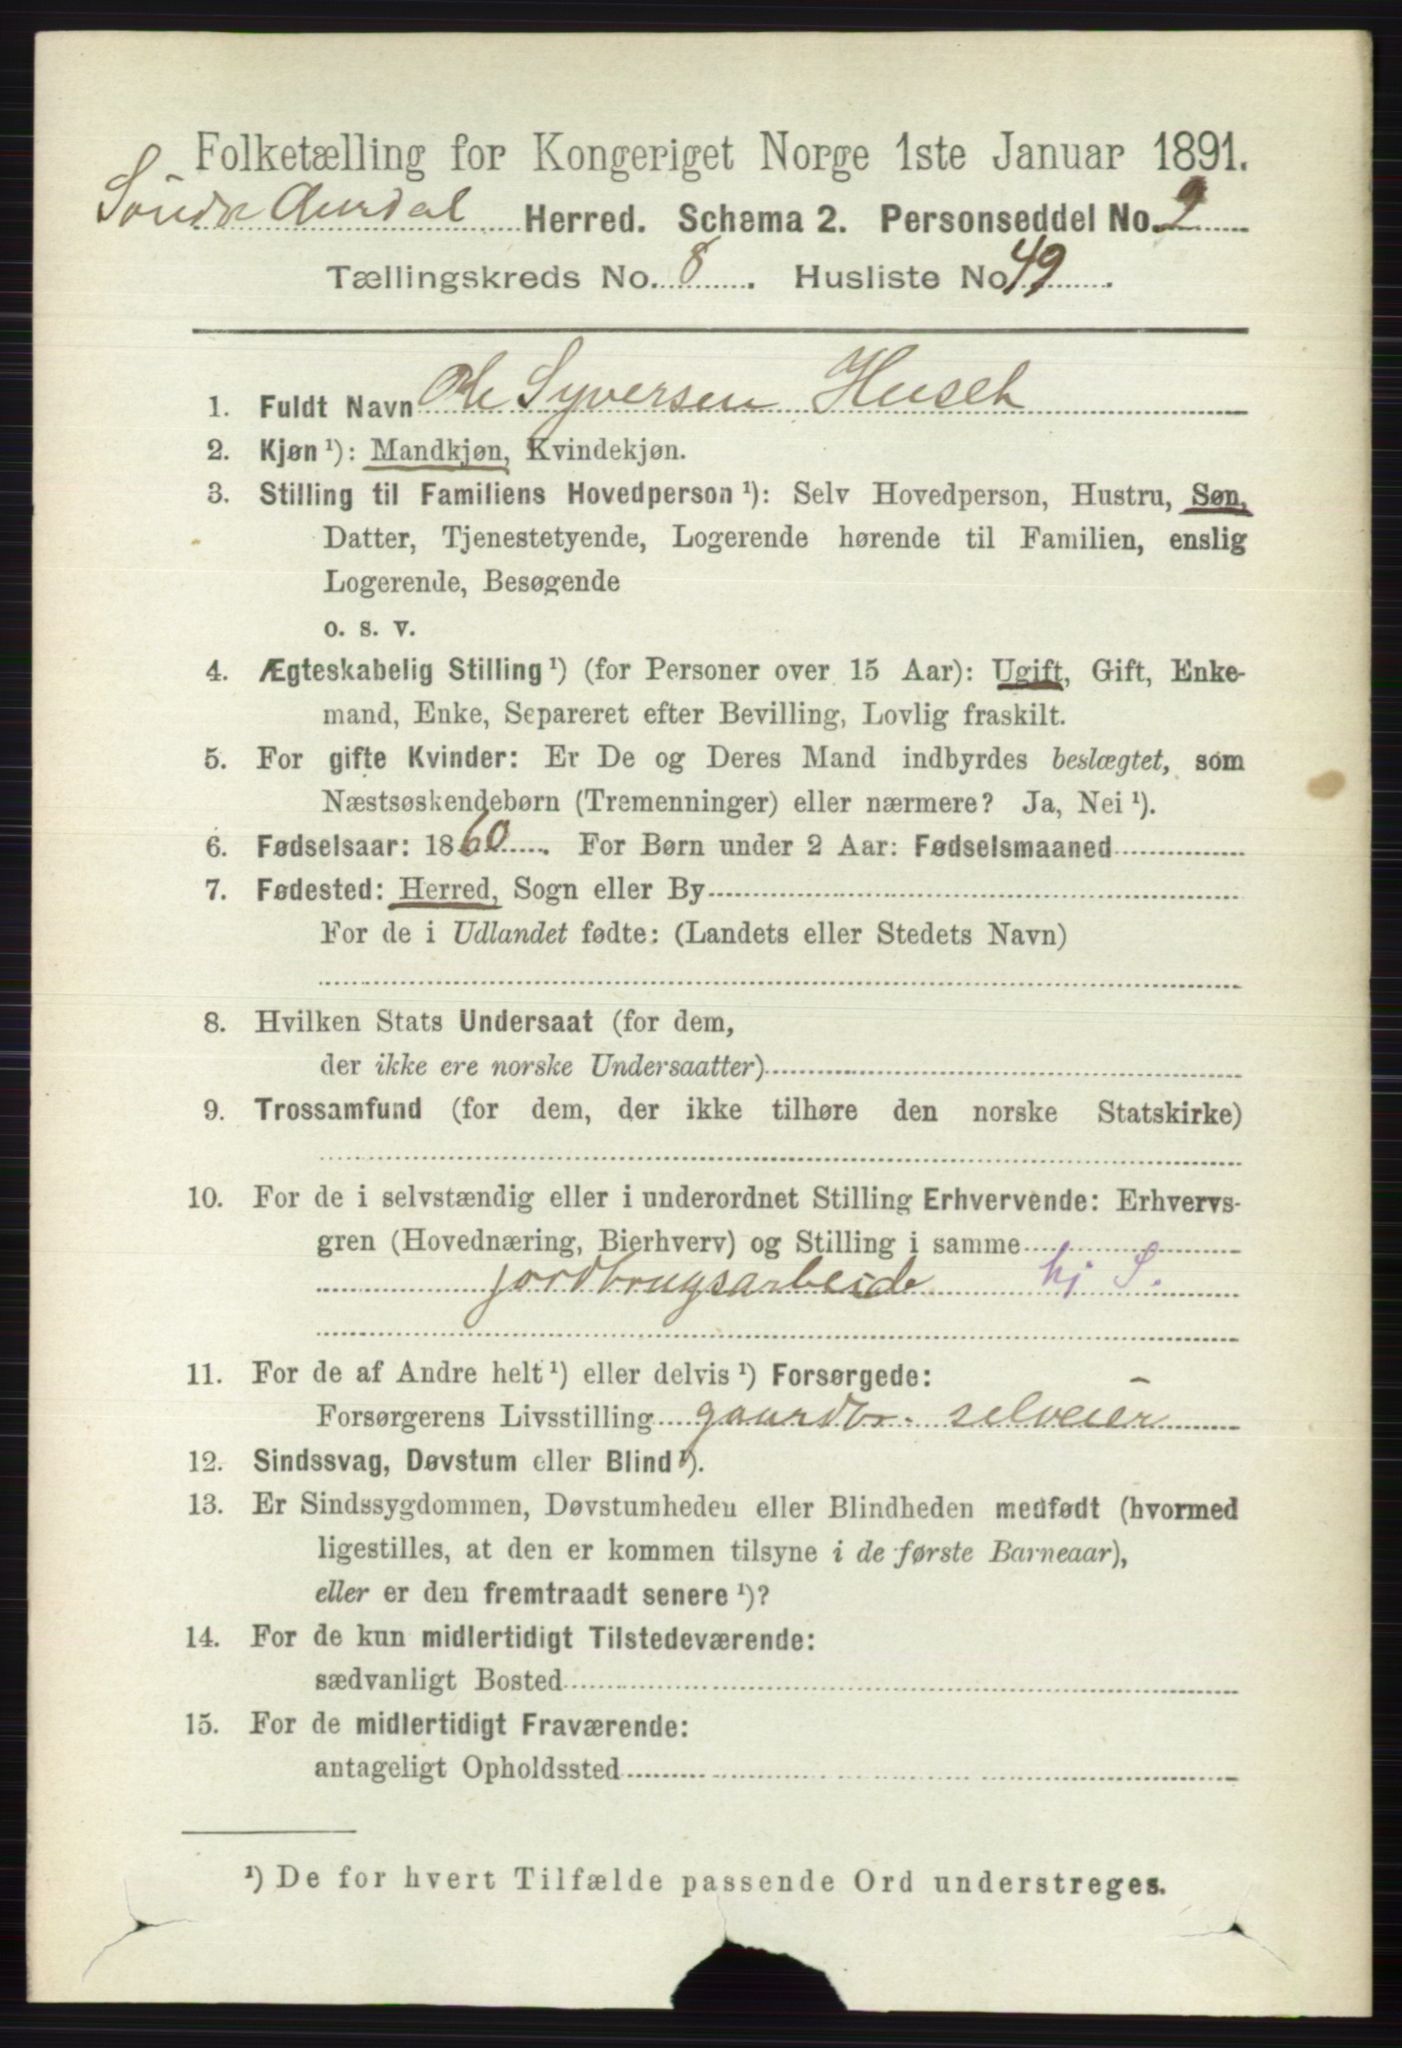 Folketælling for Kongeriget Norge 1ste Januar 1891.
Söndr Aurdal Herred. Schema 2. Personseddel No. 2
Tællingskreds No. 8. Husliste No 49.
1. Fuldt Navn Ole Syversen Huset
2. Kjøn ¹): Mandkjøn, Kvindekjøn.
3. Stilling til Familiens Hovedperson ¹): Selv Hovedperson, Hustru, Søn,
Datter, Tjenestetyende, Logerende hørende til Familien, enslig
Logerende, Besøgende
o. s. v.
4. Ægteskabelig Stilling ¹) (for Personer over 15 Aar): Ugift, Gift, Enke-
mand, Enke, Separeret efter Bevilling, Lovlig fraskilt.
5. For gifte Kvinder: Er De og Deres Mand indbyrdes beslægtet, som
Næstsøskendebørn (Tremenninger) eller nærmere? Ja, Nei ¹).
6. Fødselsaar: 1860. For Børn under 2 Aar: Fødselsmaaned
7. Fødested: Herred, Sogn eller By
For de i Udlandet fødte: (Landets eller Stedets Navn)
8. Hvilken Stats Undersaat (for dem,
der ikke ere norske Undersaatter)
9. Trossamfund (for dem, der ikke tilhøre den norske Statskirke)
10. For de i selvstændig eller i underordnet Stilling Erhvervende: Erhvervs-
gren (Hovednæring, Bierhverv) og Stilling i samme
jordbrugsarbeide hj S.
11. For de af Andre helt ¹) eller delvis ¹) Forsørgede:
Forsørgerens Livsstilling gaardbr. selveier
12. Sindssvag, Døvstum eller Blind ¹).
13. Er Sindssygdommen, Døvstumheden eller Blindheden medfødt (hvormed
ligestilles, at den er kommen tilsyne i de første Barneaar),
eller er den fremtraadt senere ¹)?
14. For de kun midlertidigt Tilstedeværende:
sædvanligt Bosted
15. For de midlertidigt Fraværende:
antageligt Opholdssted
¹) De for hvert Tilfælde passende Ord understreges.